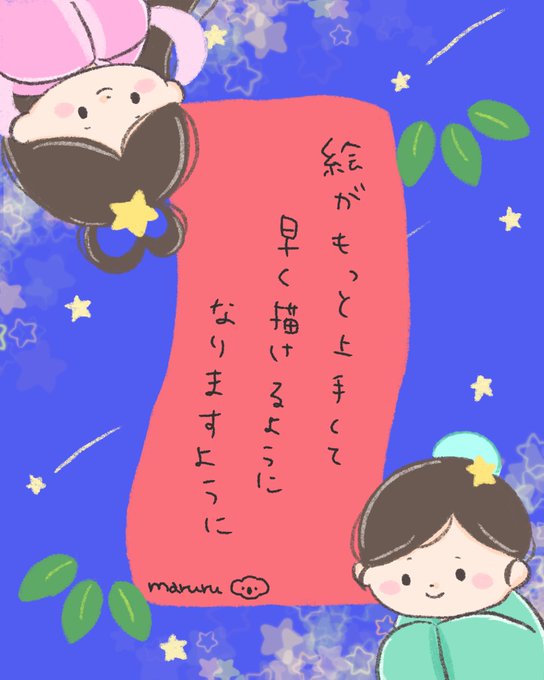 絵がもっと上手くて
早く描けるように
なりますように
maruru